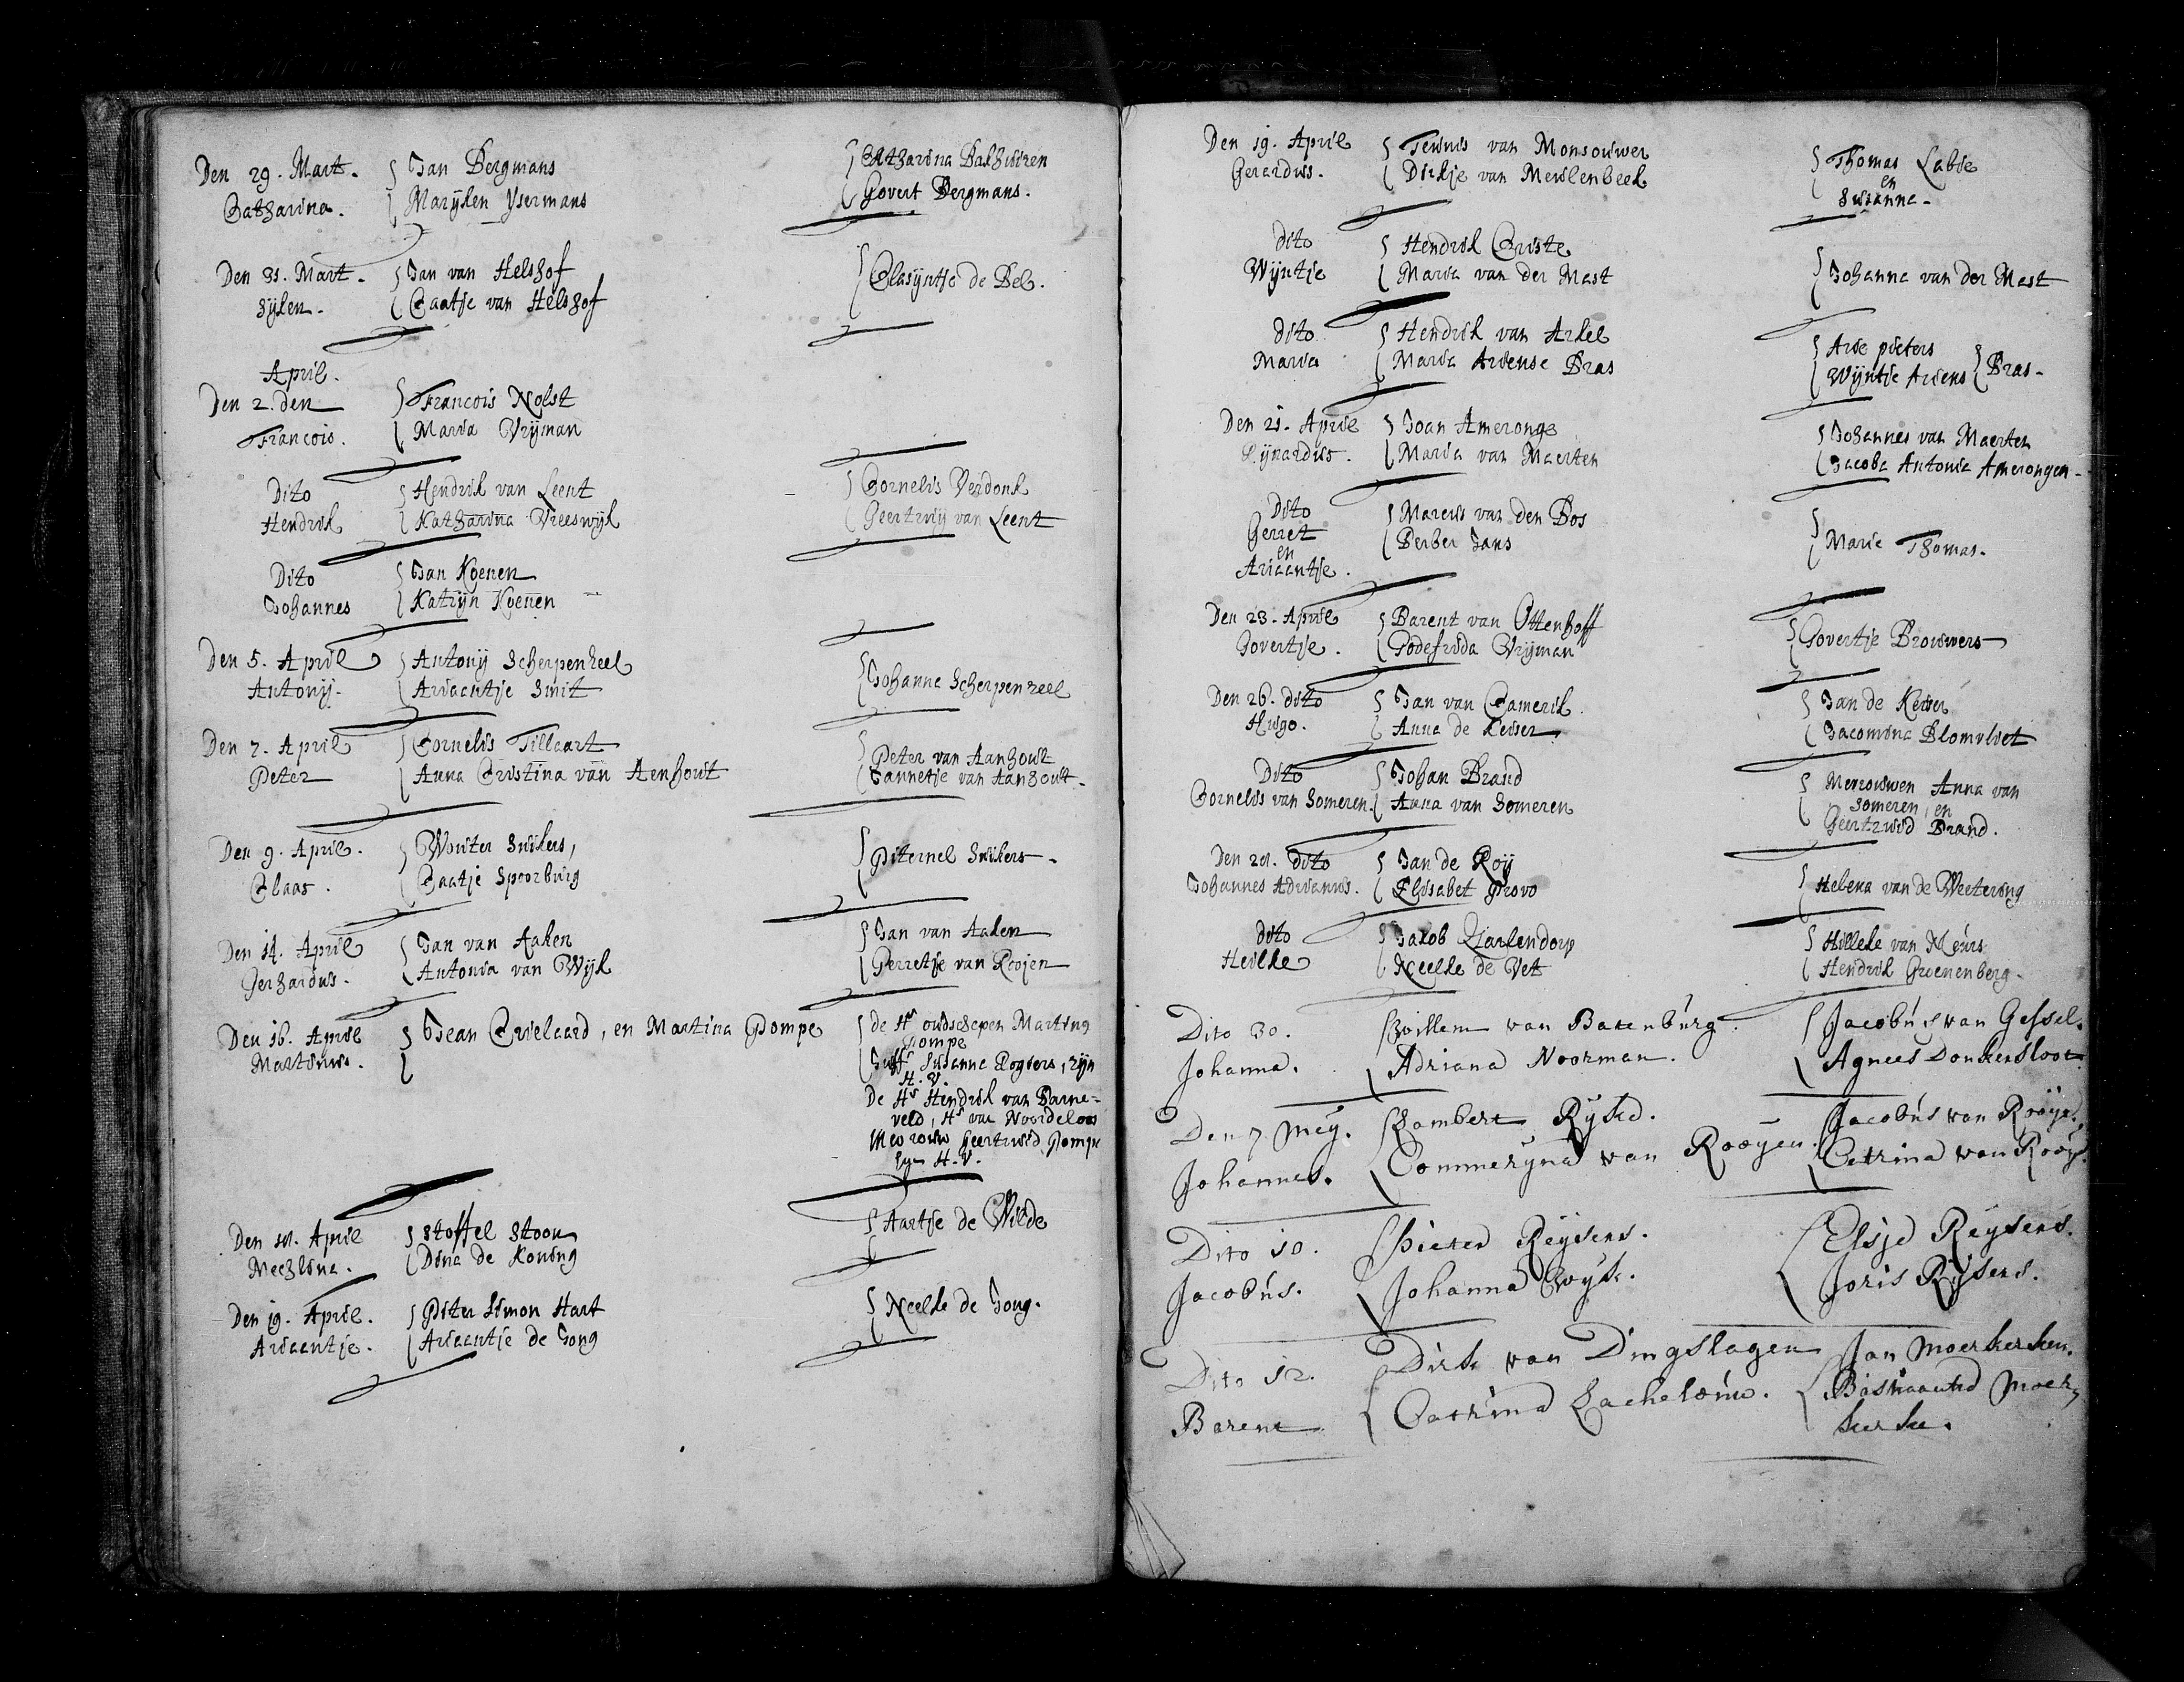 Den 29. Mart. Jan Bergmans Catharina Bakhuizen
Catharina. Marijken Ysermans Govert Bergmans.
Den 31. Mart. Jan van Helshof Clasyntje de Bel.
Sijken. Caatje van Helshof
April.
Den 2. den Francois Nolst
Francois. Maria Vrijman
Dito Hendrik van Leent Cornelis Verdonk
Hendrik Katharina Vreeswijk Geertruij van Leent
Dito Jan Koenen
Johannes Katrijn Koenen
Den 5. April Antonij Scherpenzeel Johanna Scherpenzeel
Antonij. Ariaantje Smit
Den 7. April Cornelis Tillaart Peter van Aanhout
Peter Anna Cristina van Aenhout Jannetje van Aanhout.
Den 9. April. Wouter Snikers, Piternel Snikers.
Claas. Caatje Spoorburg
Den 14. April Jan van Aaken Jan van Aaken
Gerhardus. Antonia van Wijk Gerretje van Roojen
Den 16. April Jean Crielaard, en Martina Pompe de Hr oudschepen Martinus
Martinus. Pompe
Juffr Susanna Rogiers, zijn
H. V.
De Hr Hendrik van Barne=
veld, Hr van Noordeloos
Mevrouw Geertruid Pompe
syn H. V.
Den April Stoffel Stoon Aartje de Wilde
Mechlina. Dina de Koning
Den 19. April. Piter Simon Hart Neelke de Jong.
Ariaantje. Ariaantje de Jong
Den 19. April Teunis van Monsouwer Thomas Labie
Gerardus. Dirkje van Meulenbeek en
Susanna.
Dito Hendrik Criste Johanna van der Mast
Wijntje Maria van der Mast
Dito Hendrik van Arkel Arie pieters
Maria Maria Ariense Bras Wijntje Ariens Bras.
Den 21. April Joan Amerongs Johannes van Maerten
Rijnardus. Maria van Maerten Jacoba Antonia Amerongen.
Dito Marcus van den Bos Marie Thomas.
Gerret Berber Jans
en
Ariaantje.
Den 23. April Barent van Ottenhoff Govertje Brouwers
Govertje. Godefrida Vrijman
Den 26. dito Jan van Camerik Jan de Keiser
Hugo. Anna de Keiser Jacomina Blomvliet
Dito Johan Brand Mevrouwen Anna van
Cornelis van Someren. Anna van Someren Someren, en
Geertruid Brand.
Den dito Jan de Roij Helena van de Weetering
Johannes Adrianus. Elisabet Provo
dito Jakob Kiarkendorp Hilleke van Meurs
Heilke Neelke de Vet Hendrik Groenenberg.
Dito 30. Willem van Batenburg. Jacobus van Gessel.
Johanna. Adriana Noorman. Agnees Donkersloot.
Den 7 Mey. Lambert Ryke. Jacobus van Rooye.
Johannes. Commeryna van Rooyen. Catrina van Rooy.
Dito 10. Pieter Reysers. Elsje Reysers.
Jacobus. Johanna Wyk. Joris Rysers.
Dito 12. Dirk van Dingslagen Jan Moerkerken.
Barent Catrina Bastiaantie Moer,
kerke.